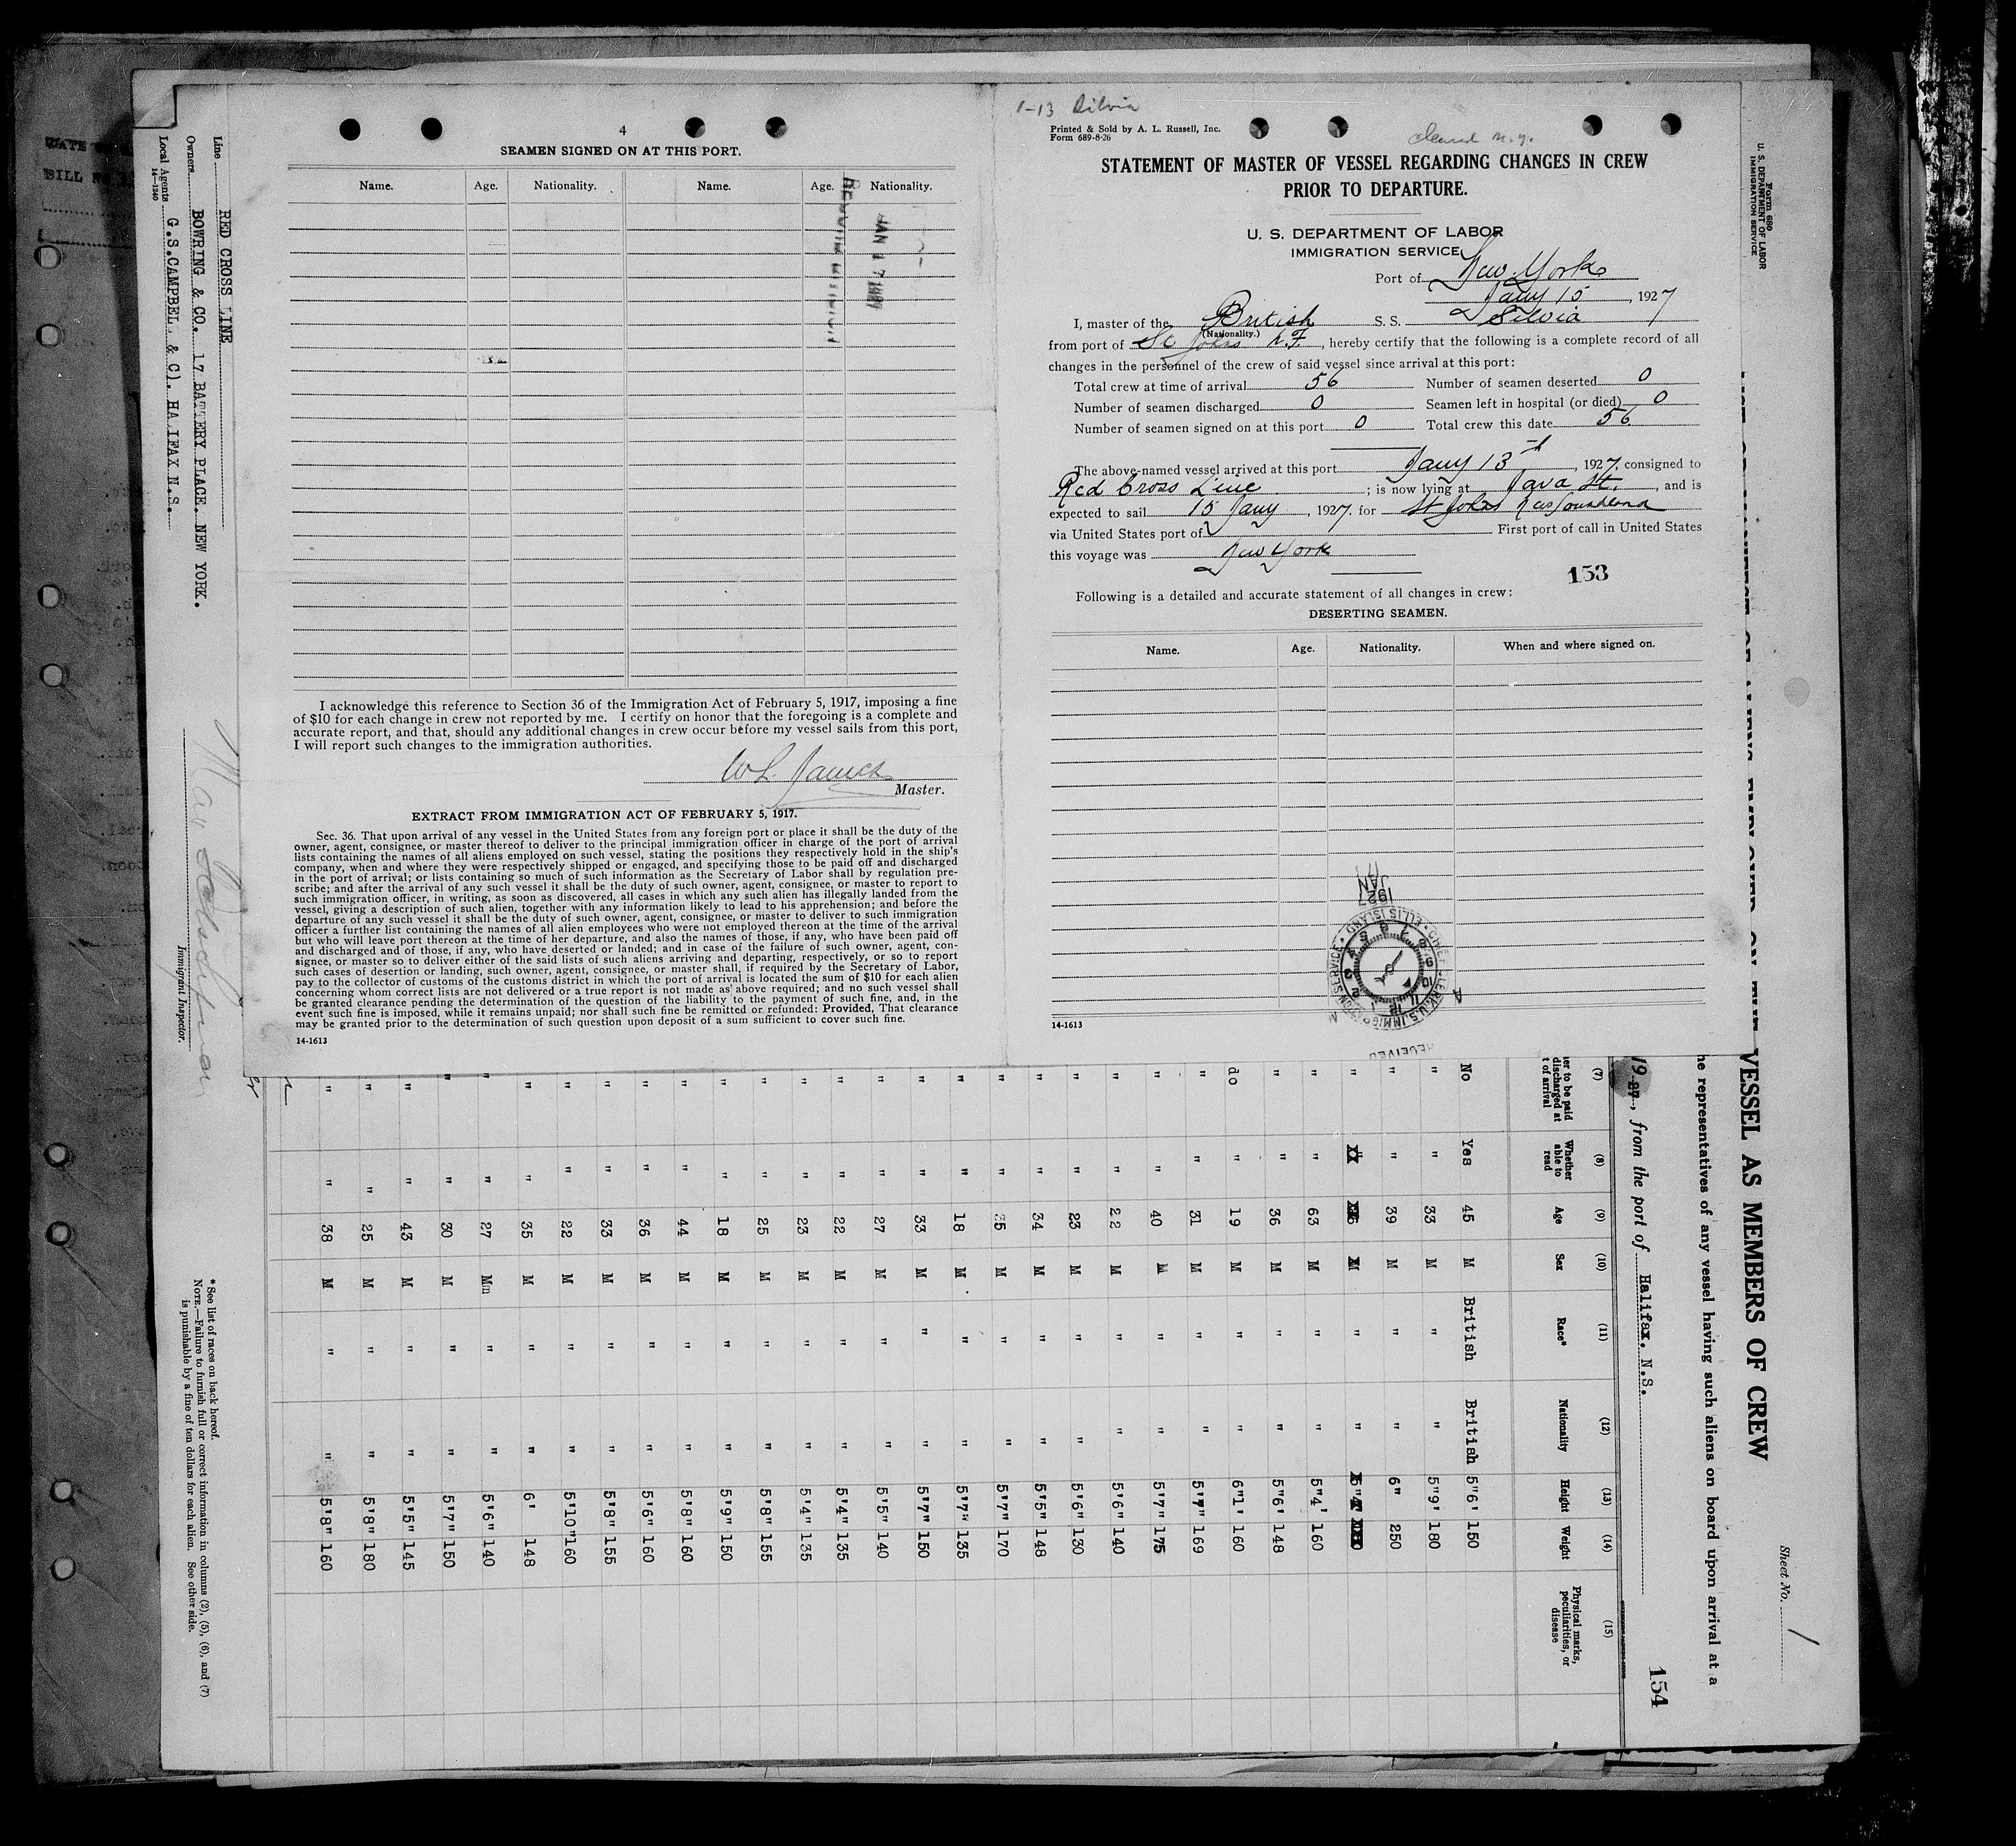 4
SEAMEN SIGNED ON AT THIS PORT.
Name. Age. Nationality. Name. Age. Nationality.
JAN 17 1927
I acknowledge this reference to Section 36 of the Immigration Act of February 5, 1917, imposing a fine
of $10 for each change in crew not reported by me. I certify on honor that the foregoing is a complete and
accurate report, and that, should any additional changes in crew occur before my vessel sails from this port,
I will report such changes to the immigration authorities.
W.L. James
Master.
EXTRACT FROM IMMIGRATION ACT OF FEBRUARY 5, 1917.
Sec. 36. That upon arrival of any vessel in the United States from any foreign port or place it shall be the duty of the
owner, agent, consignee, or master thereof to deliver to the principal immigration officer in charge of the port of arrival
lists containing the names of all aliens employed on such vessel, stating the positions they respectively hold in the ship's
company, when and where they were respectively shipped or engaged, and specifying those to be paid off and discharged
in the port of arrival; or lists containing so much of such information as the Secretary of Labor shall by regulation pre-
scribe; and after the arrival of any such vessel it shall be the duty of such owner, agent, consignee, or master to report to
such immigration officer, in writing, as soon as discovered, all cases in which any such alien has illegally landed from the
vessel, giving a description of such alien, together with any information likely to lead to his apprehension; and before the
departure of any such vessel it shall be the duty of such owner, agent, consignee, or master to deliver to such immigration
officer a further list containing the names of all alien employees who were not employed thereon at the time of the arrival
but who will leave port thereon at the time of her departure, and also the names of those, if any, who have been paid off
and discharged and of those, if any, who have deserted or landed; and in case of the failure of such owner, agent, con-
signee, or master so to deliver either of the said lists of such aliens arriving and departing, respectively, or so to report
such cases of desertion or landing, such owner, agent, consignee, or master shall, if required by the Secretary of Labor,
pay to the collector of customs of the customs district in which the port of arrival is located the sum of $10 for each alien
concerning whom correct lists are not delivered or a true report is not made as above required; and no such vessel shall
be granted clearance pending the determination of the question of the liability to the payment of such fine, and, in the
event such fine is imposed, while it remains unpaid; nor shall such fine be remitted or refunded: Provided, That clearance
may be granted prior to the determination of such question upon deposit of a sum sufficient to cover such fine.
14-1613
1-13 Silvia
Printed & Sold by A. L. Russell, Inc.
Form 689-8-26
Cleared N.Y.
STATEMENT OF MASTER OF VESSEL REGARDING CHANGES IN CREW
PRIOR TO DEPARTURE.
U. S. DEPARTMENT OF LABOR
IMMIGRATION SERVICE
Port of New York
Jany 15, 1927
I, master of the British S. S. Silvia
(Nationality.)
from port of St Johns N.F., hereby certify that the following is a complete record of all
changes in the personnel of the crew of said vessel since arrival at this port:
Total crew at time of arrival 56 Number of seamen deserted 0
Number of seamen discharged 0 Seamen left in hospital (or died) 0
Number of seamen signed on at this port 0 Total crew this date 56
The above-named vessel arrived at this port Jany 13th, 1927, consigned to
Red Cross Line; is now lying at Java St., and is
expected to sail 15 Jany, 1927. for St Johns Newfoundland
via United States port of First port of call in United States
this voyage was New York
153
Following is a detailed and accurate statement of all changes in crew:
DESERTING SEAMEN.
Name. Age. Nationality. When and where signed on.
JAN 1927
CHIEF CLERK, U.S. IMMIGRATION SERVICE ELLIS ISLAND
RECEIVED
14-1613
Form 680
U. S. DEPARTMENT OF LABOR
IMMIGRATION SERVICE
Sheet No. 1
VESSEL AS MEMBERS OF CREW
representatives of any vessel having such aliens on board upon arrival at a
154
1927, from the port of Halifax. N.S.
(7) (8) (9) (10) (11) (12) (13) (14) (15)
to be paid discharged at of arrival Whether able to read Age Sex Race* Nationality Height Weight Physical marks, peculiarities, or disease
No Yes 45 M British British 5"6' 150
" " 33 M " " 5"9' 180
" " 39 M " " 6" 250
" " "
" " 63 M " " 5"4' 160
" " 36 M " " 5"6' 148
do " 19 M " " 6"1' 160
" " 31 M " " 5'7" 169
" " 40 M " " 5'7" 175
" " 22 M " " 5'6" 140
" " 23 M " " 5'6" 130
" " 34 M " " 5'5" 148
" " 35 M " " 5'7" 170
" " 18 M " " 5'7" 135
" " 33 M " " 5'7" 150
" " 27 M " " 5'5" 140
" " 22 M " " 5'4" 135
" " 23 M " " 5'4" 135
" " 25 M " " 5'8" 155
" " 18 M " " 5'9" 150
" " 44 M " " 5'8" 160
" " 36 M " " 5'6" 160
" " 33 M " " 5'8" 155
" " 22 M " " 5'10" 160
" " 35 M " " 6' 148
" " 27 Mm " " 5'6" 140
" " 30 M " " 5'7" 150
" " 43 M " " 5'5" 145
" " 25 M " " 5'8" 180
" " 38 M " " 5'8" 160
Line RED CROSS LINE
Owners BOWRING & CO. 17 BATTERY PLACE. NEW YORK.
Local Agents G.S.CAMPBELL & C). HALIFAX N.S.
14-1240
Immigrant Inspector.
* See list of races on back hereof.
NOTE.—Failure to furnish full or correct information in columns (2), (5), (6), and (7)
is punishable by a fine of ten dollars for each alien. See other side.